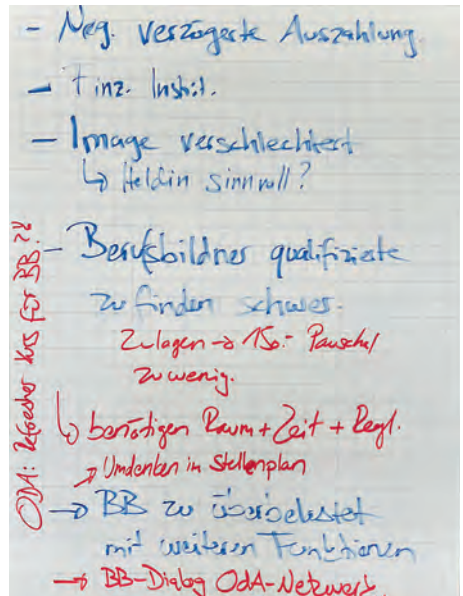 - Neg. verzögerte Auszahlung.
- Finz. Instit.
- Image verschlechtert
↳ Heldin sinnvoll?
- Berufsbildner qualifizierte
zu finden schwer.
Zulagen → 150.- Pauschal
zu wenig.
↳ benötigen Raum + Zeit + Regl.
→ Umdenken in Stellenplan
→ BB zu überbelastet
mit weiteren Funktionen
→ BB-Dialog OdA-Netzwerk.
OdA: Refresher Kurs für BB??